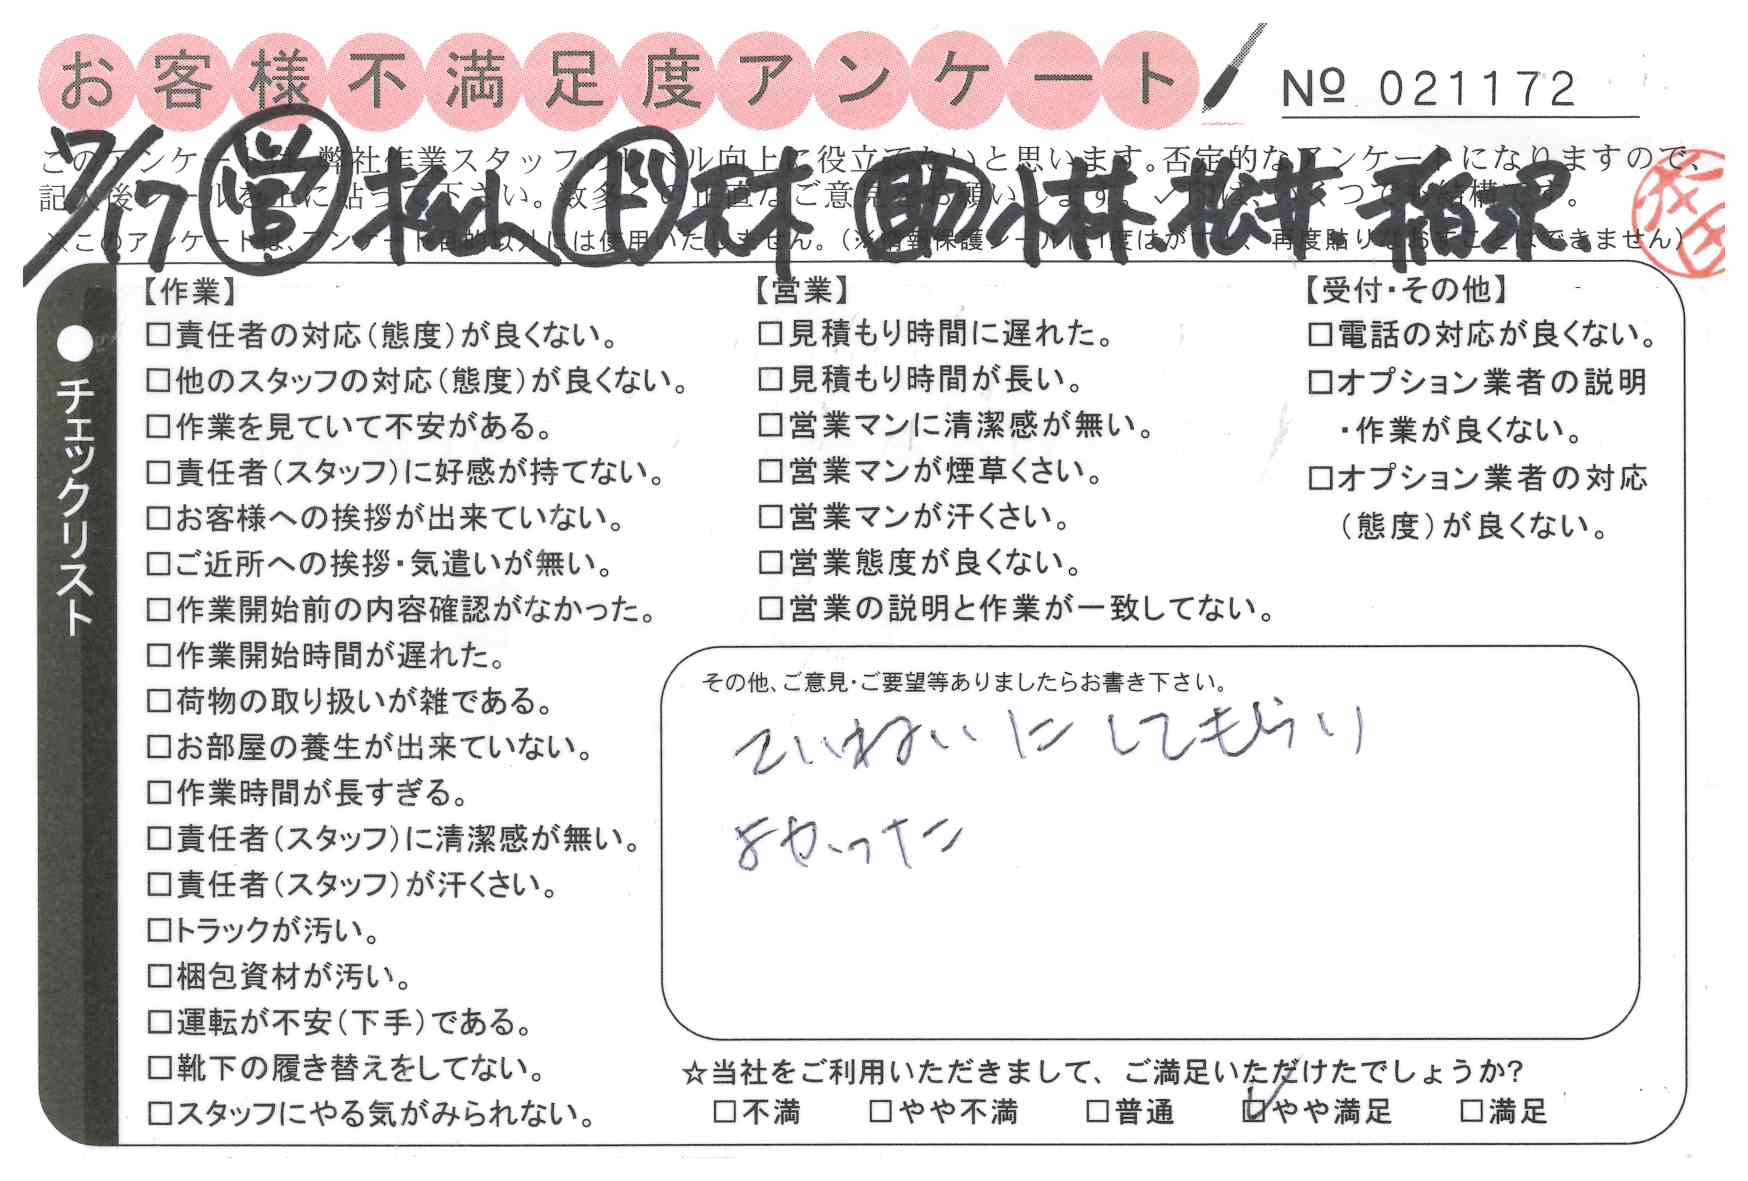 お客様不満足度アンケート
№ 021172
7/17 営 松山 ド 元林 助 小林 松井 稲沢
このアンケートは、弊社作業スタッフのレベル向上に役立てたいと思います。否定的なアンケートになりますので、
記入後シールを上に貼って下さい。数多くの正直なご意見をお願いします。✓印は、いくつでも結構です。
※このアンケートは、アンケート目的以外には使用いたしません。(※情報保護シールは1度はがすと、再度貼りなおすことはできません)
●チェックリスト
【作業】
□責任者の対応(態度)が良くない。
□他のスタッフの対応(態度)が良くない。
□作業を見ていて不安がある。
□責任者(スタッフ)に好感が持てない。
□お客様への挨拶が出来ていない。
□ご近所への挨拶・気遣いが無い。
□作業開始前の内容確認がなかった。
□作業開始時間が遅れた。
□荷物の取り扱いが雑である。
□お部屋の養生が出来ていない。
□作業時間が長すぎる。
□責任者(スタッフ)に清潔感が無い。
□責任者(スタッフ)が汗くさい。
□トラックが汚い。
□梱包資材が汚い。
□運転が不安(下手)である。
□靴下の履き替えをしてない。
□スタッフにやる気がみられない。
【営業】
□見積もり時間に遅れた。
□見積もり時間が長い。
□営業マンに清潔感が無い。
□営業マンが煙草くさい。
□営業マンが汗くさい。
□営業態度が良くない。
□営業の説明と作業が一致してない。
【受付・その他】
□電話の対応が良くない。
□オプション業者の説明
・作業が良くない。
□オプション業者の対応
(態度)が良くない。
その他、ご意見・ご要望等ありましたらお書き下さい。
ていねいにしてもらい
よかった
☆当社をご利用いただきまして、ご満足いただけたでしょうか?
□不満 □やや不満 □普通 ☑やや満足 □満足